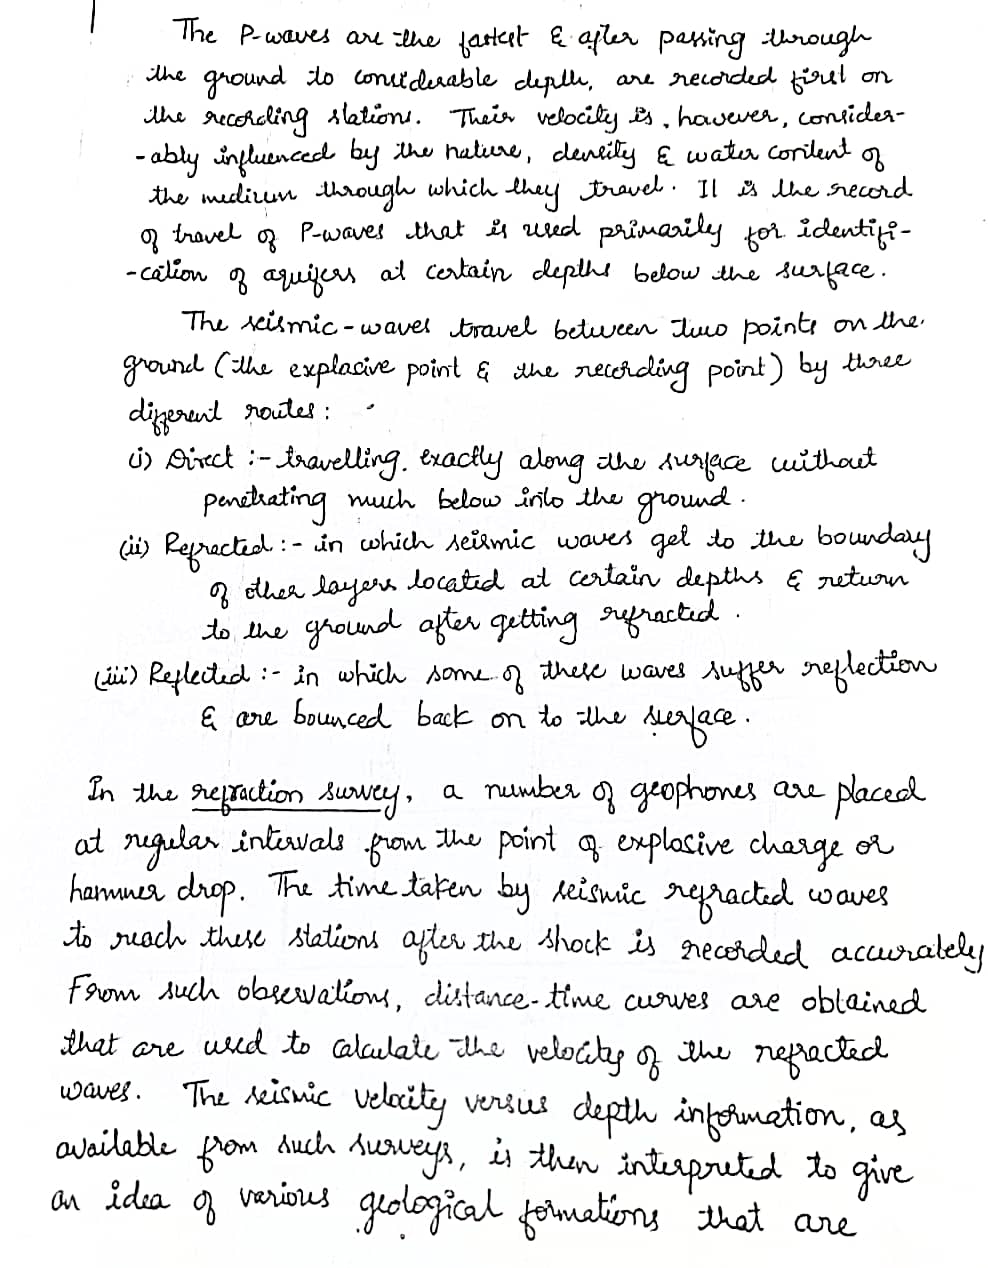 The P-waves are the fastest & after passing through
the ground to considerable depth, are recorded first on
the recording stations. Their velocity is, however, consider-
-ably influenced by the nature, density & water content of
the medium through which they travel. It is the record
of travel of P-waves that is used primarily for identifi-
-cation of aquifers at certain depths below the surface.
The seismic-waves travel between two points on the
ground (the explosive point & the recording point) by three
different routes:
(i) Direct :- travelling exactly along the surface without
penetrating much below into the ground.
(ii) Refracted :- in which seismic waves get to the boundary
of other layers located at certain depths & return
to the ground after getting refracted.
(iii) Reflected :- in which some of these waves suffer reflection
& are bounced back on to the surface.
In the refraction survey, a number of geophones are placed
at regular intervals from the point of explosive charge or
hammer drop. The time taken by seismic refracted waves
to reach these stations after the shock is recorded accurately
From such observations, distance-time curves are obtained
that are used to calculate the velocity of the refracted
waves. The seismic velocity versus depth information, as
available from such surveys, is then interpreted to give
an idea of various geological formations that are